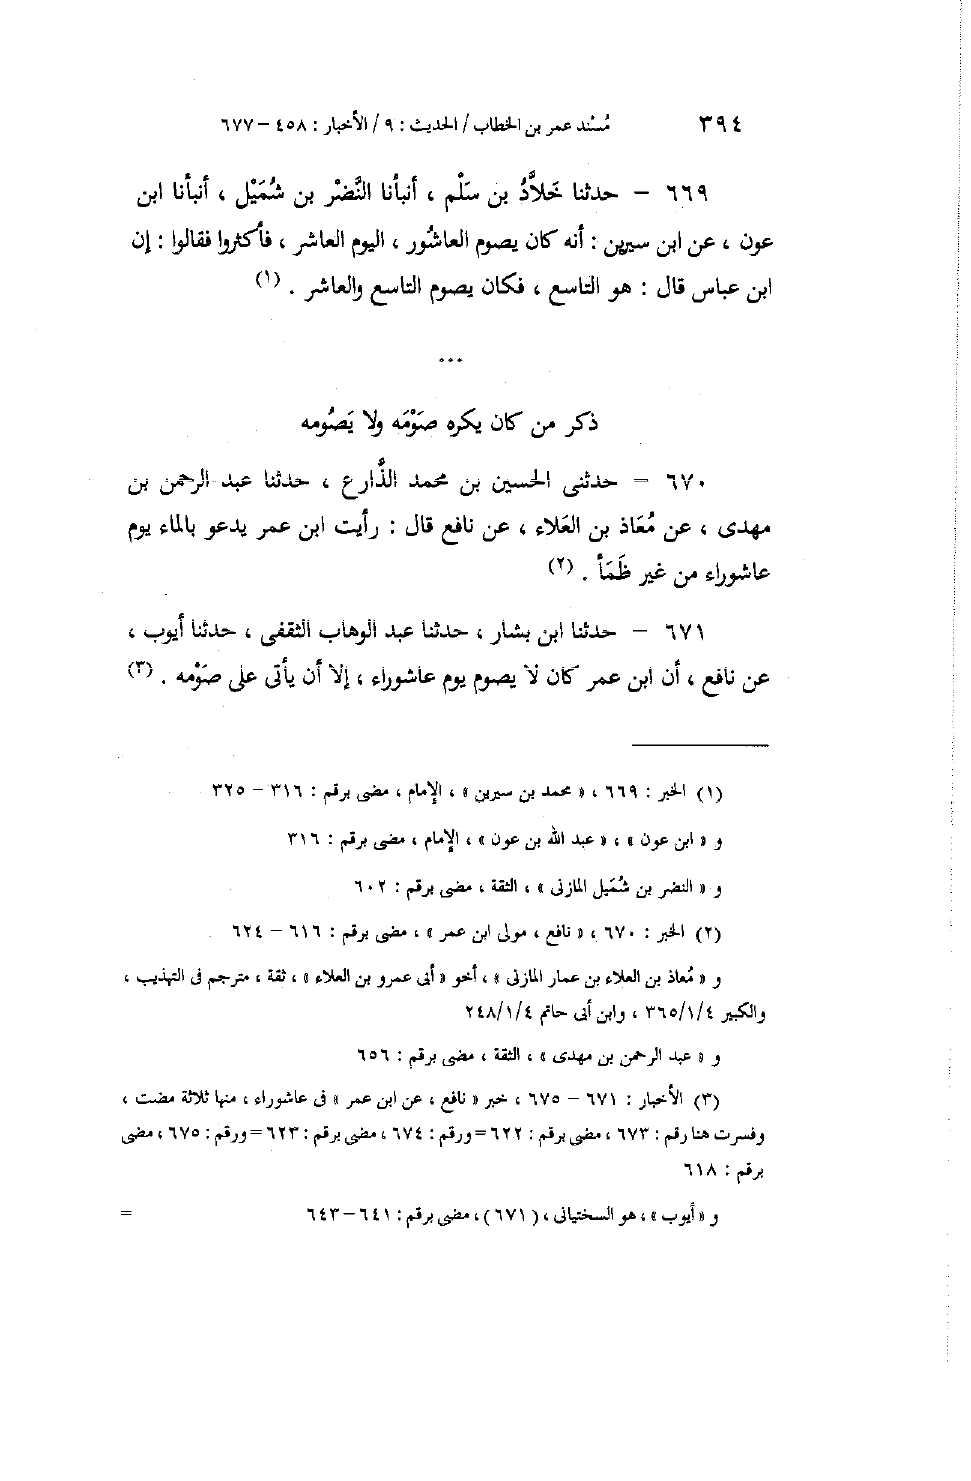 ٣٩٤ مُسْند عمر بن الخطاب / الحديث : ٩ / الأخبار : ٤٥٨ – ٦٧٧
٦٦٩ – حدثنا خَلاَّدُ بن سَلْم ، أنبأنا النَّضْر بن شُمَيْل ، أنبأنا ابن
عون ، عن ابن سيرين : أنه كان يصوم العاشُور ، اليوم العاشر ، فأكثروا فقالوا : إن
ابن عباس قال : هو التاسع ، فكان يصوم التاسع والعاشر . (١)
...
ذكر من كان يكره صَوْمَه ولا يَصُومه
٦٧٠ = حدثنى الحسين بن محمد الذَّارع ، حدثنا عبد الرحمن بن
مهدى ، عن مُعَاذ بن العَلاء ، عن نافع قال : رأيت ابن عمر يدعو بالماء يوم
عاشوراء من غير ظَمَأ . (٢)
٦٧١ – حدثنا ابن بشار ، حدثنا عبد الوهاب الثقفى ، حدثنا أيوب ،
عن نافع ، أن ابن عمر كان لا يصوم يوم عاشوراء ، إلا أن يأتى على صَوْمه . (٣)
(١) الخبر : ٦٦٩ ، « محمد بن سيرين » ، الإمام ، مضى برقم : ٣١٦ – ٣٢٥
و « ابن عون » ، « عبد الله بن عون » ، الإمام ، مضى برقم : ٣١٦
و « النضر بن شُمَيل المازنى » ، الثقة ، مضى برقم : ٦٠٢
(٢) الخبر : ٦٧٠ ، « نافع ، مولى ابن عمر » ، مضى برقم : ٦١٦ – ٦٢٤
و « مُعاذ بن العلاء بن عمار المازنى » ، أخو « أبى عمرو بن العلاء » ، ثقة ، مترجم فى التهذيب ،
والكبير ٣٦٥/١/٤ ، وابن أبى حاتم ٢٤٨/١/٤
و « عبد الرحمن بن مهدى » ، الثقة ، مضى برقم : ٦٥٦
(٣) الأخبار : ٦٧١ – ٦٧٥ ، خبر « نافع ، عن ابن عمر » فى عاشوراء ، منها ثلاثة مضت ،
وفسرت هنا رقم : ٦٧٣ ، مضى برقم : ٦٢٢ = ورقم : ٦٧٤ ، مضى برقم : ٦٢٣ = ورقم : ٦٧٥ ، مضى
برقم : ٦١٨
و « أيوب » ، هو السختيانى ، (٦٧١) ، مضى برقم : ٦٤١ – ٦٤٣ =